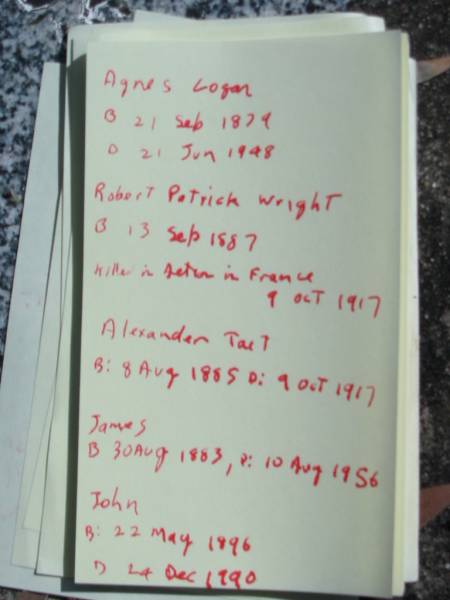 Agnes Logan
B 21 Sep 1879
D 21 Jun 1948
Robert Patrick Wright
B 13 Sep 1887
Killed in Action in France
9 Oct 1917
Alexander Tait
B: 8 Aug 1885 D: 9 Oct 1917
James
B 30 Aug 1883, D: 10 Aug 1956
John
B: 22 May 1896
D 24 Dec 1990